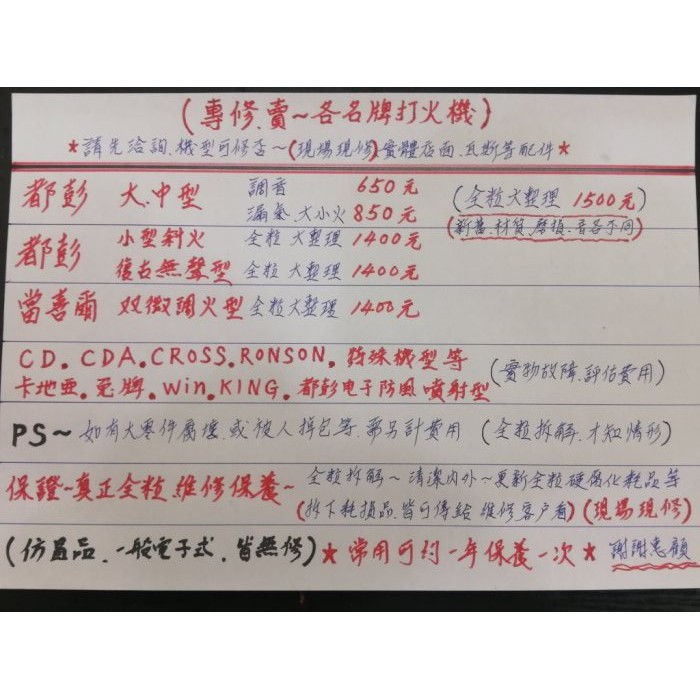 (專修.賣~各名牌打火機)
★請先洽詢.機型可修否~(現場現修)實體店面.瓦斯等配件★
都彭 大.中型 調音 650元 (全粒大整理 1500元)
漏氣.大小火 850元 (新舊.材質.磨損.音各不同)
都彭 小型斜火 全粒 大整理 1400元
復古無聲型 全粒 大整理 1400元
當喜爾 双微調火型 全粒大整理 1400元
CD.CDA.CROSS.RONSON.特殊機型等 (實物故障.評估費用)
卡地亞.兔牌.Win.KING.都彭电子防風噴射型
PS~如有大零件腐壞.或被人掉包等.需另計費用 (全粒拆解.才知情形)
保證~真正全粒維修保養~ 全粒拆解~清潔內外~更新全粒硬腐化耗品等
(拆下耗損品.皆可傳給 維修客戶看) (現場現修)
(仿冒品.一般電子式.皆無修) ★常用可約一年保養一次★ 謝謝惠顧